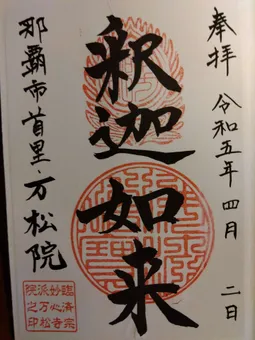 奉拝 令和五年四月 二日
釈迦如来
那覇市首里 万松院
臨済宗
妙心寺
派万松
院之印